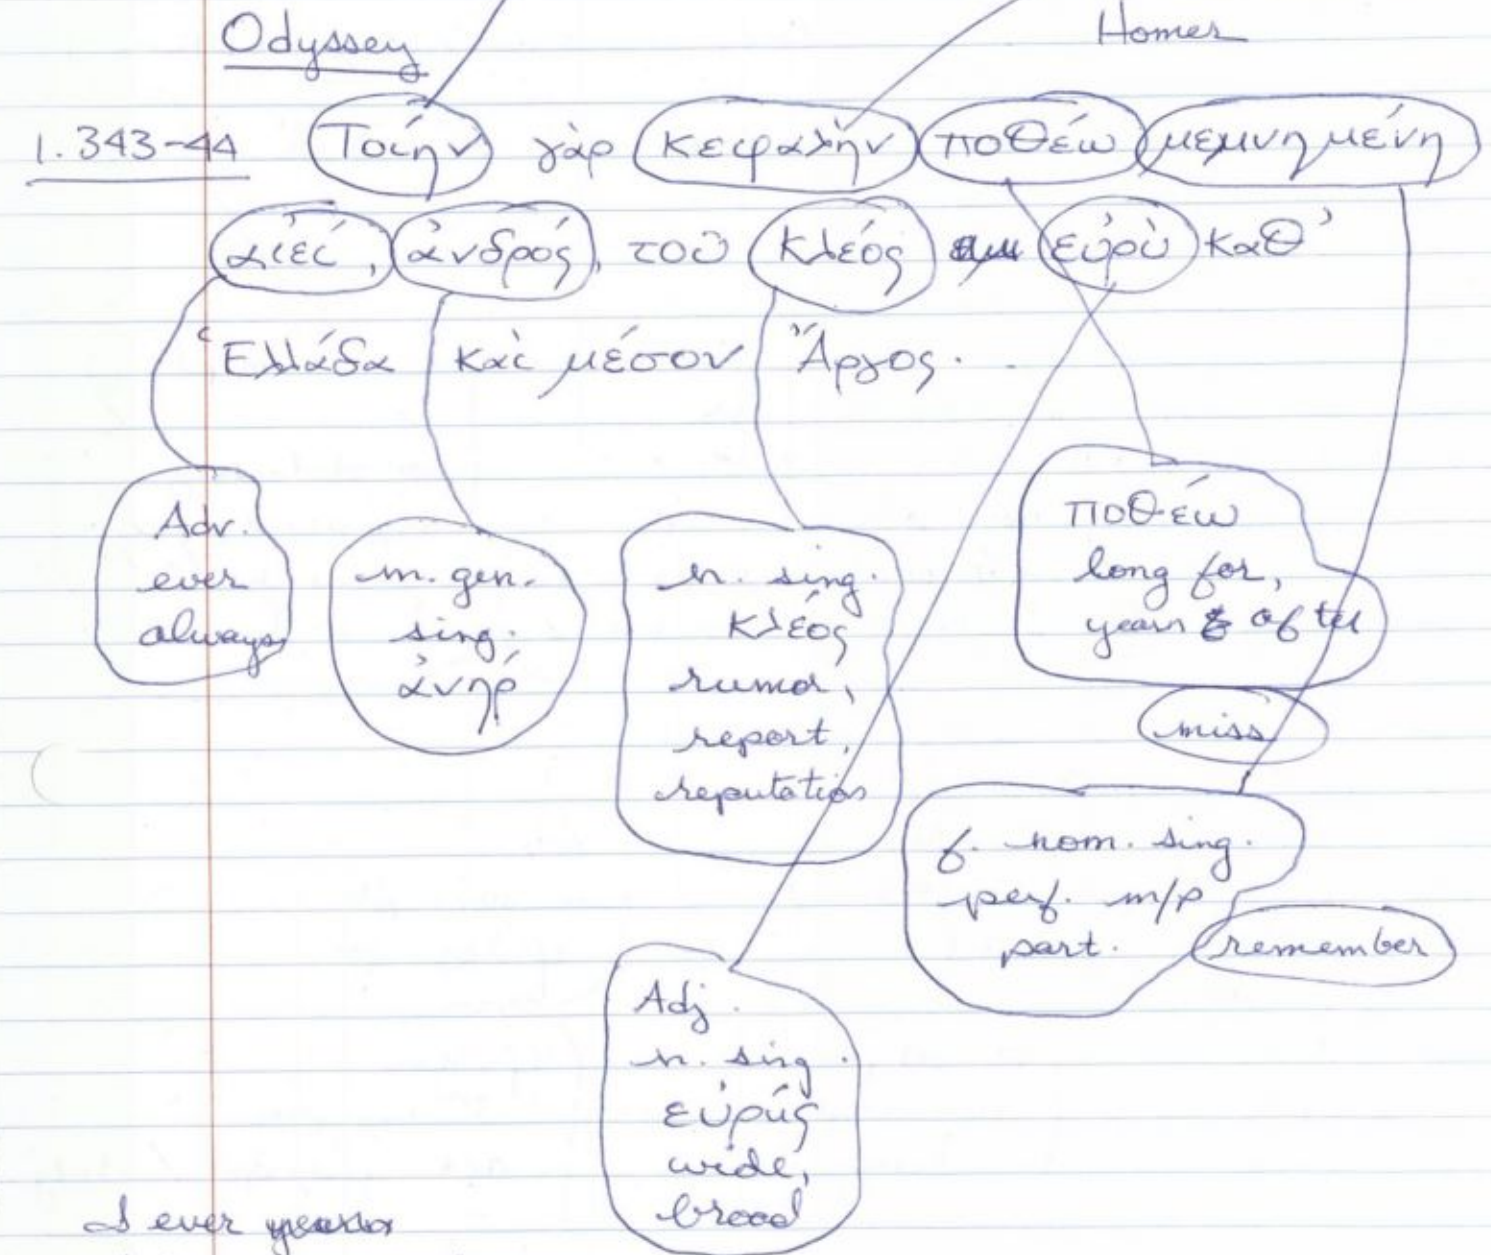 Odyssey
Homer
1. 343-44 Τοίην γὰρ κεφαλὴν ποθέω μεμνημένη
αἰεί, ἀνδρός, τοῦ κλέος εὐρὺ καθ᾽
Ἑλλάδα καὶ μέσον Ἄργος.
Adv.
ever
always
m. gen.
sing.
ἀνηρ
n. sing.
κλέος
rumor,
report,
reputation
ποθέω
long for,
yearn after
miss
f. nom. sing.
perf. m/p
part.
remember
Adj.
n. sing.
εὐρύς
wide,
broad
I ever yearn